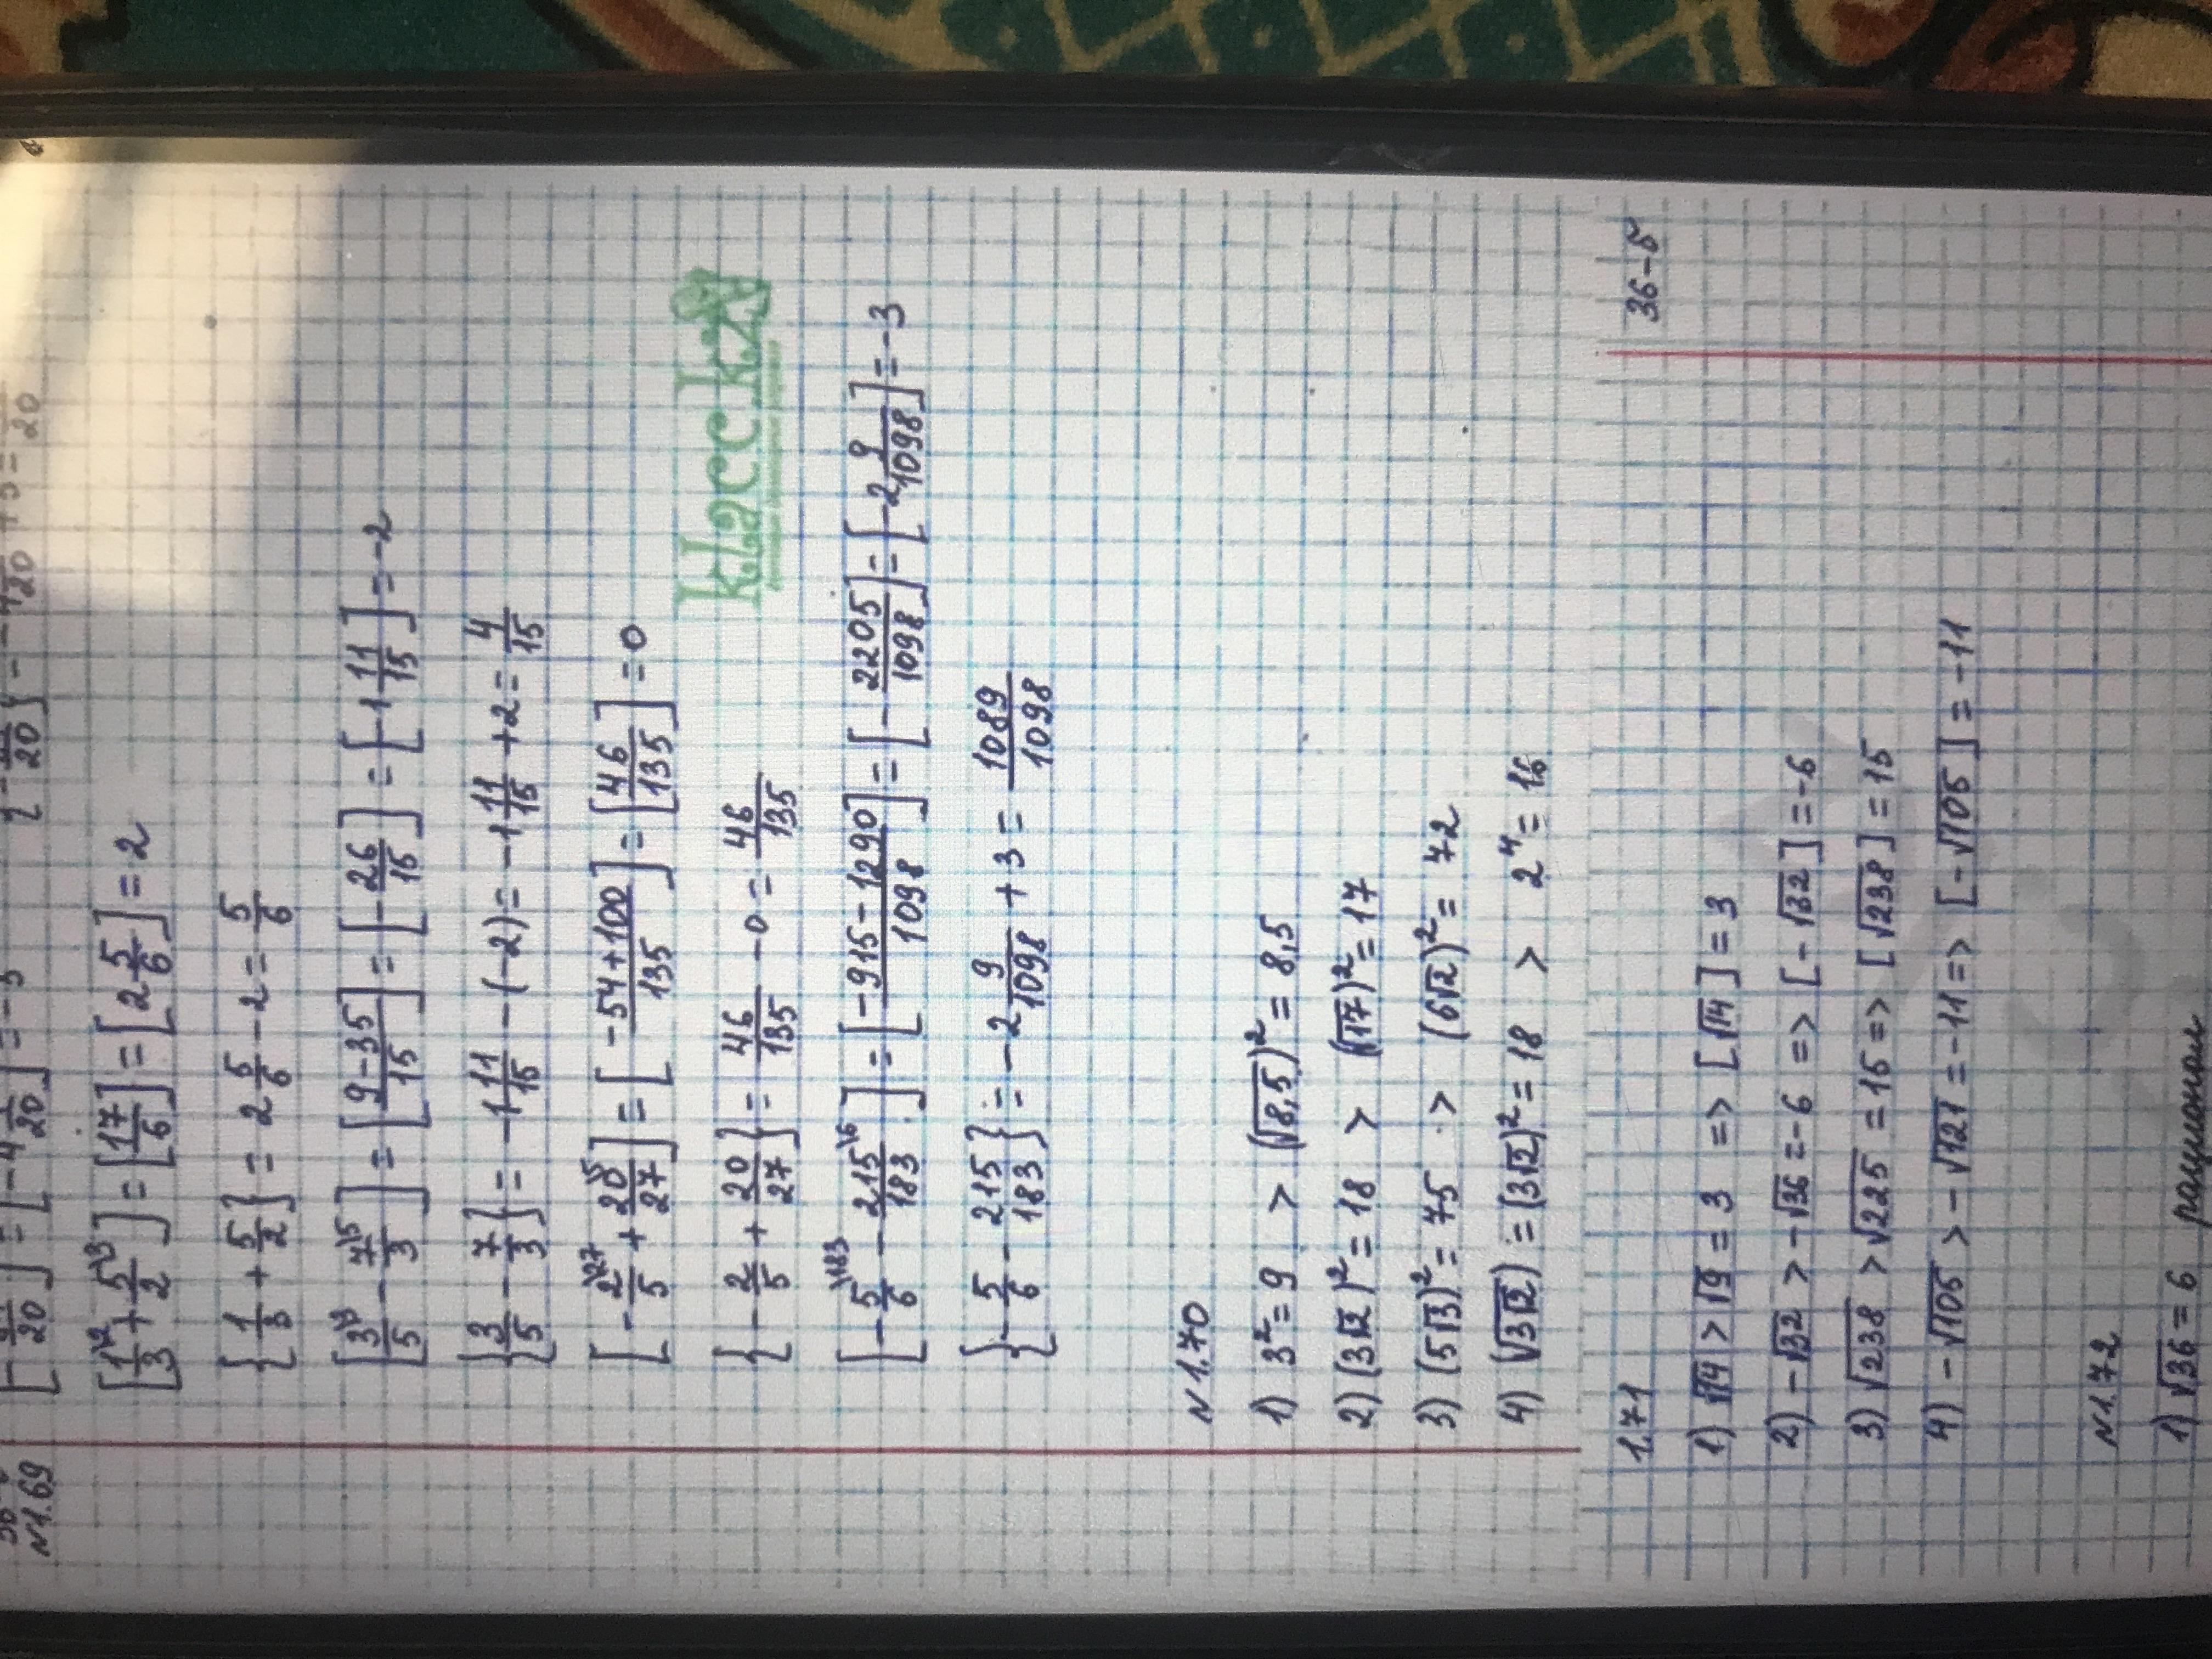 [-\frac{}{20}] = [-4\frac{1}{20}] = -5
N1.69
[\frac{1^{\2}}{3} + \frac{5^{\3}}{2}] = [\frac{17}{6}] = [2\frac{5}{6}] = 2
{\frac{1}{3} + \frac{5}{2}} = 2\frac{5}{6} - 2 = \frac{5}{6}
[\frac{3^{\3}}{5} - \frac{7^{\5}}{3}] = [\frac{9-35}{15}] = [-\frac{26}{15}] = [-1\frac{11}{15}] = -2
{\frac{3}{5} - \frac{7}{3}} = -1\frac{11}{15} - (-2) = -1\frac{11}{15} + 2 = \frac{4}{15}
[-\frac{2^{\27}}{5} + \frac{20^{\5}}{27}] = [\frac{-54+100}{135}] = [\frac{46}{135}] = 0
klассka
{-\frac{2}{5} + \frac{20}{27}} = \frac{46}{135} - 0 = \frac{46}{135}
[-\frac{5^{\183}}{6} - \frac{215^{\6}}{183}] = [\frac{-915-1290}{1098}] = [-\frac{2205}{1098}] = [-2\frac{9}{1098}] = -3
{-\frac{5}{6} - \frac{215}{183}} = -2\frac{9}{1098} + 3 = \frac{1089}{1098}
N1.70
1) 3² = 9 > (√8,5)² = 8,5
2) (3√2)² = 18 > (√17)² = 17
3) (5√3)² = 75 > (6√2)² = 72
4) (√3√2) = (3√2)² = 18 > 2⁴ = 16
36-б
1.71
1) √14 > √9 = 3 => [√14] = 3
2) -√32 > -√36 = -6 => [-√32] = -6
3) √238 > √225 = 15 => [√238] = 15
4) -√105 > -√121 = -11 => [-√105] = -11
N1.72
1) √36 = 6 рационал